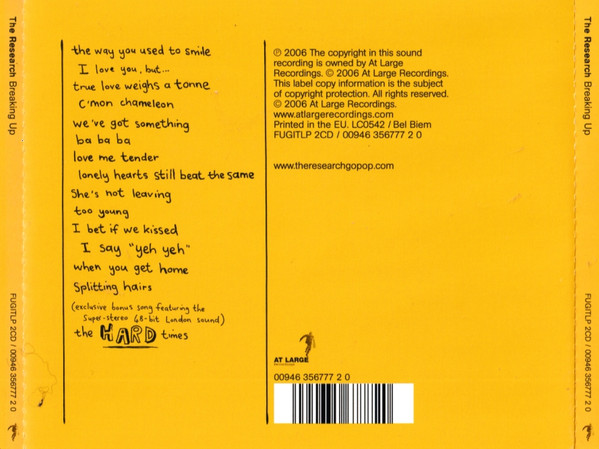 The Research Breaking Up
the way you used to smile
I love you, but...
true love weighs a tonne
C'mon chameleon
we've got something
ba ba ba
love me tender
lonely hearts still beat the same
She's not leaving
too young
I bet if we kissed
I say "yeh yeh"
when you get home
Splitting hairs
(exclusive bonus song featuring the
Super-stereo 68-bit London sound)
the HARD times
℗ 2006 The copyright in this sound
recording is owned by At Large
Recordings. © 2006 At Large Recordings.
This label copy information is the subject
of copyright protection. All rights reserved.
© 2006 At Large Recordings.
www.atlargerecordings.com
Printed in the EU. LC0542 / Bel Biem
FUGITLP 2CD / 00946 356777 2 0
www.theresearchgopop.com
AT LARGE
00946 356777 2 0
FUGITLP 2CD / 00946 356777 2 0
The Research Breaking Up
FUGITLP 2CD / 00946 356777 2 0